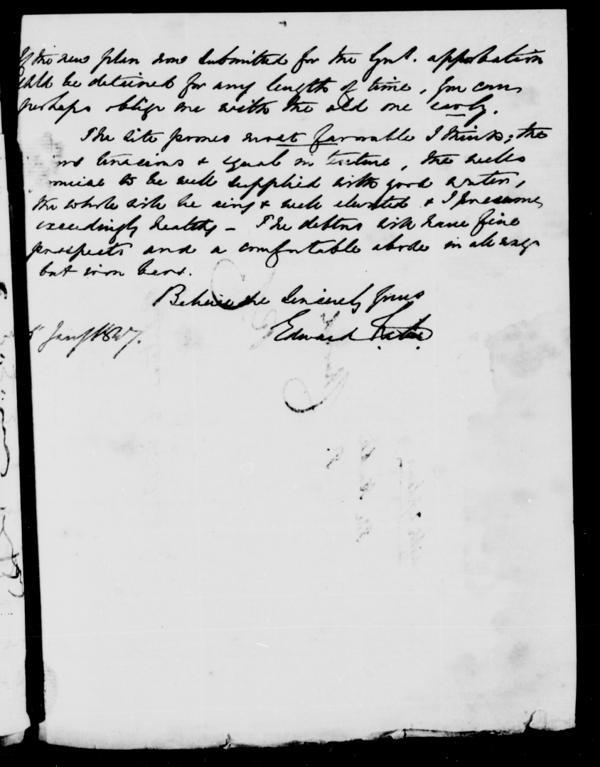 If the new plan now submitted for the Gvt. approbation
shld be detained for any length of time, you can
perhaps oblige me with the old one early.
The site proves most favorable I think; the
tenacious & equal in texture, the wells
to be well supplied with good water,
the whole will be airy & well elevated & I presume
exceedingly healthy – The debtors will have fine
prospects and a comfortable abode in all ways
but iron bars.
Believe me Sincerely yours
Edward
Jany 1847.